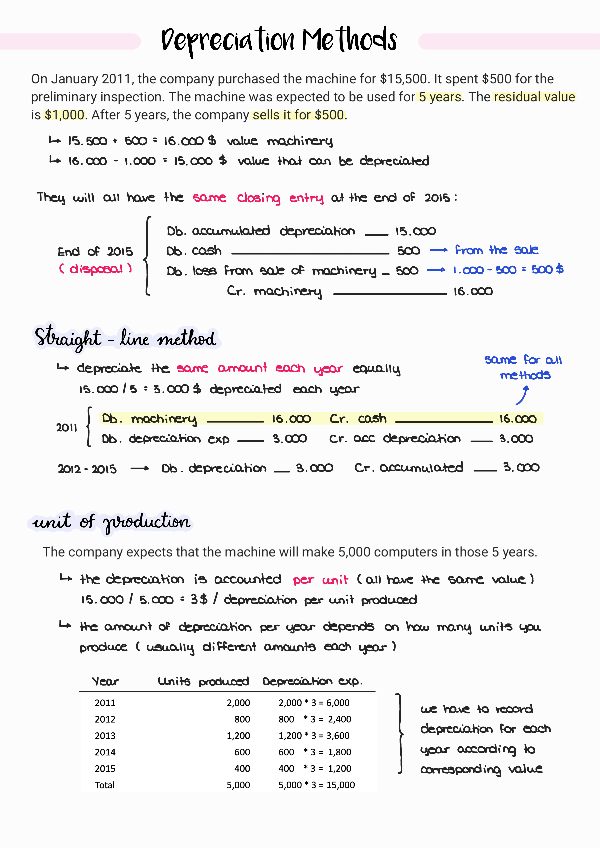 Depreciation Methods
On January 2011, the company purchased the machine for $15,500. It spent $500 for the
preliminary inspection. The machine was expected to be used for 5 years. The residual value
is $1,000. After 5 years, the company sells it for $500.
↳ 15.500 + 500 = 16.000 $ value machinery
↳ 16.000 - 1.000 = 15.000 $ value that can be depreciated
They will all have the same closing entry at the end of 2015:
End of 2015
(disposal)
Db. accumulated depreciation __ 15.000
Db. cash __ 500 → from the sale
Db. loss from sale of machinery _ 500 → 1.000 - 500 = 500 $
Cr. machinery __ 16.000
Straight - line method
↳ depreciate the same amount each year equally
15.000 / 5 = 3.000 $ depreciated each year
same for all
methods
2011
Db. machinery __ 16.000 Cr. cash __ 16.000
Db. depreciation exp __ 3.000 Cr. acc depreciation __ 3.000
2012 - 2015 → Db. depreciation __ 3.000 Cr. accumulated __ 3.000
unit of production
The company expects that the machine will make 5,000 computers in those 5 years.
↳ the depreciation is accounted per unit (all have the same value)
15.000 / 5.000 = 3$ / depreciation per unit produced
↳ the amount of depreciation per year depends on how many units you
produce (usually different amounts each year)
Year Units produced Depreciation exp.
2011 2,000 2,000 * 3 = 6,000
2012 800 800 * 3 = 2,400
2013 1,200 1,200 * 3 = 3,600
2014 600 600 * 3 = 1,800
2015 400 400 * 3 = 1,200
Total 5,000 5,000 * 3 = 15,000
we have to record
depreciation for each
year according to
corresponding value